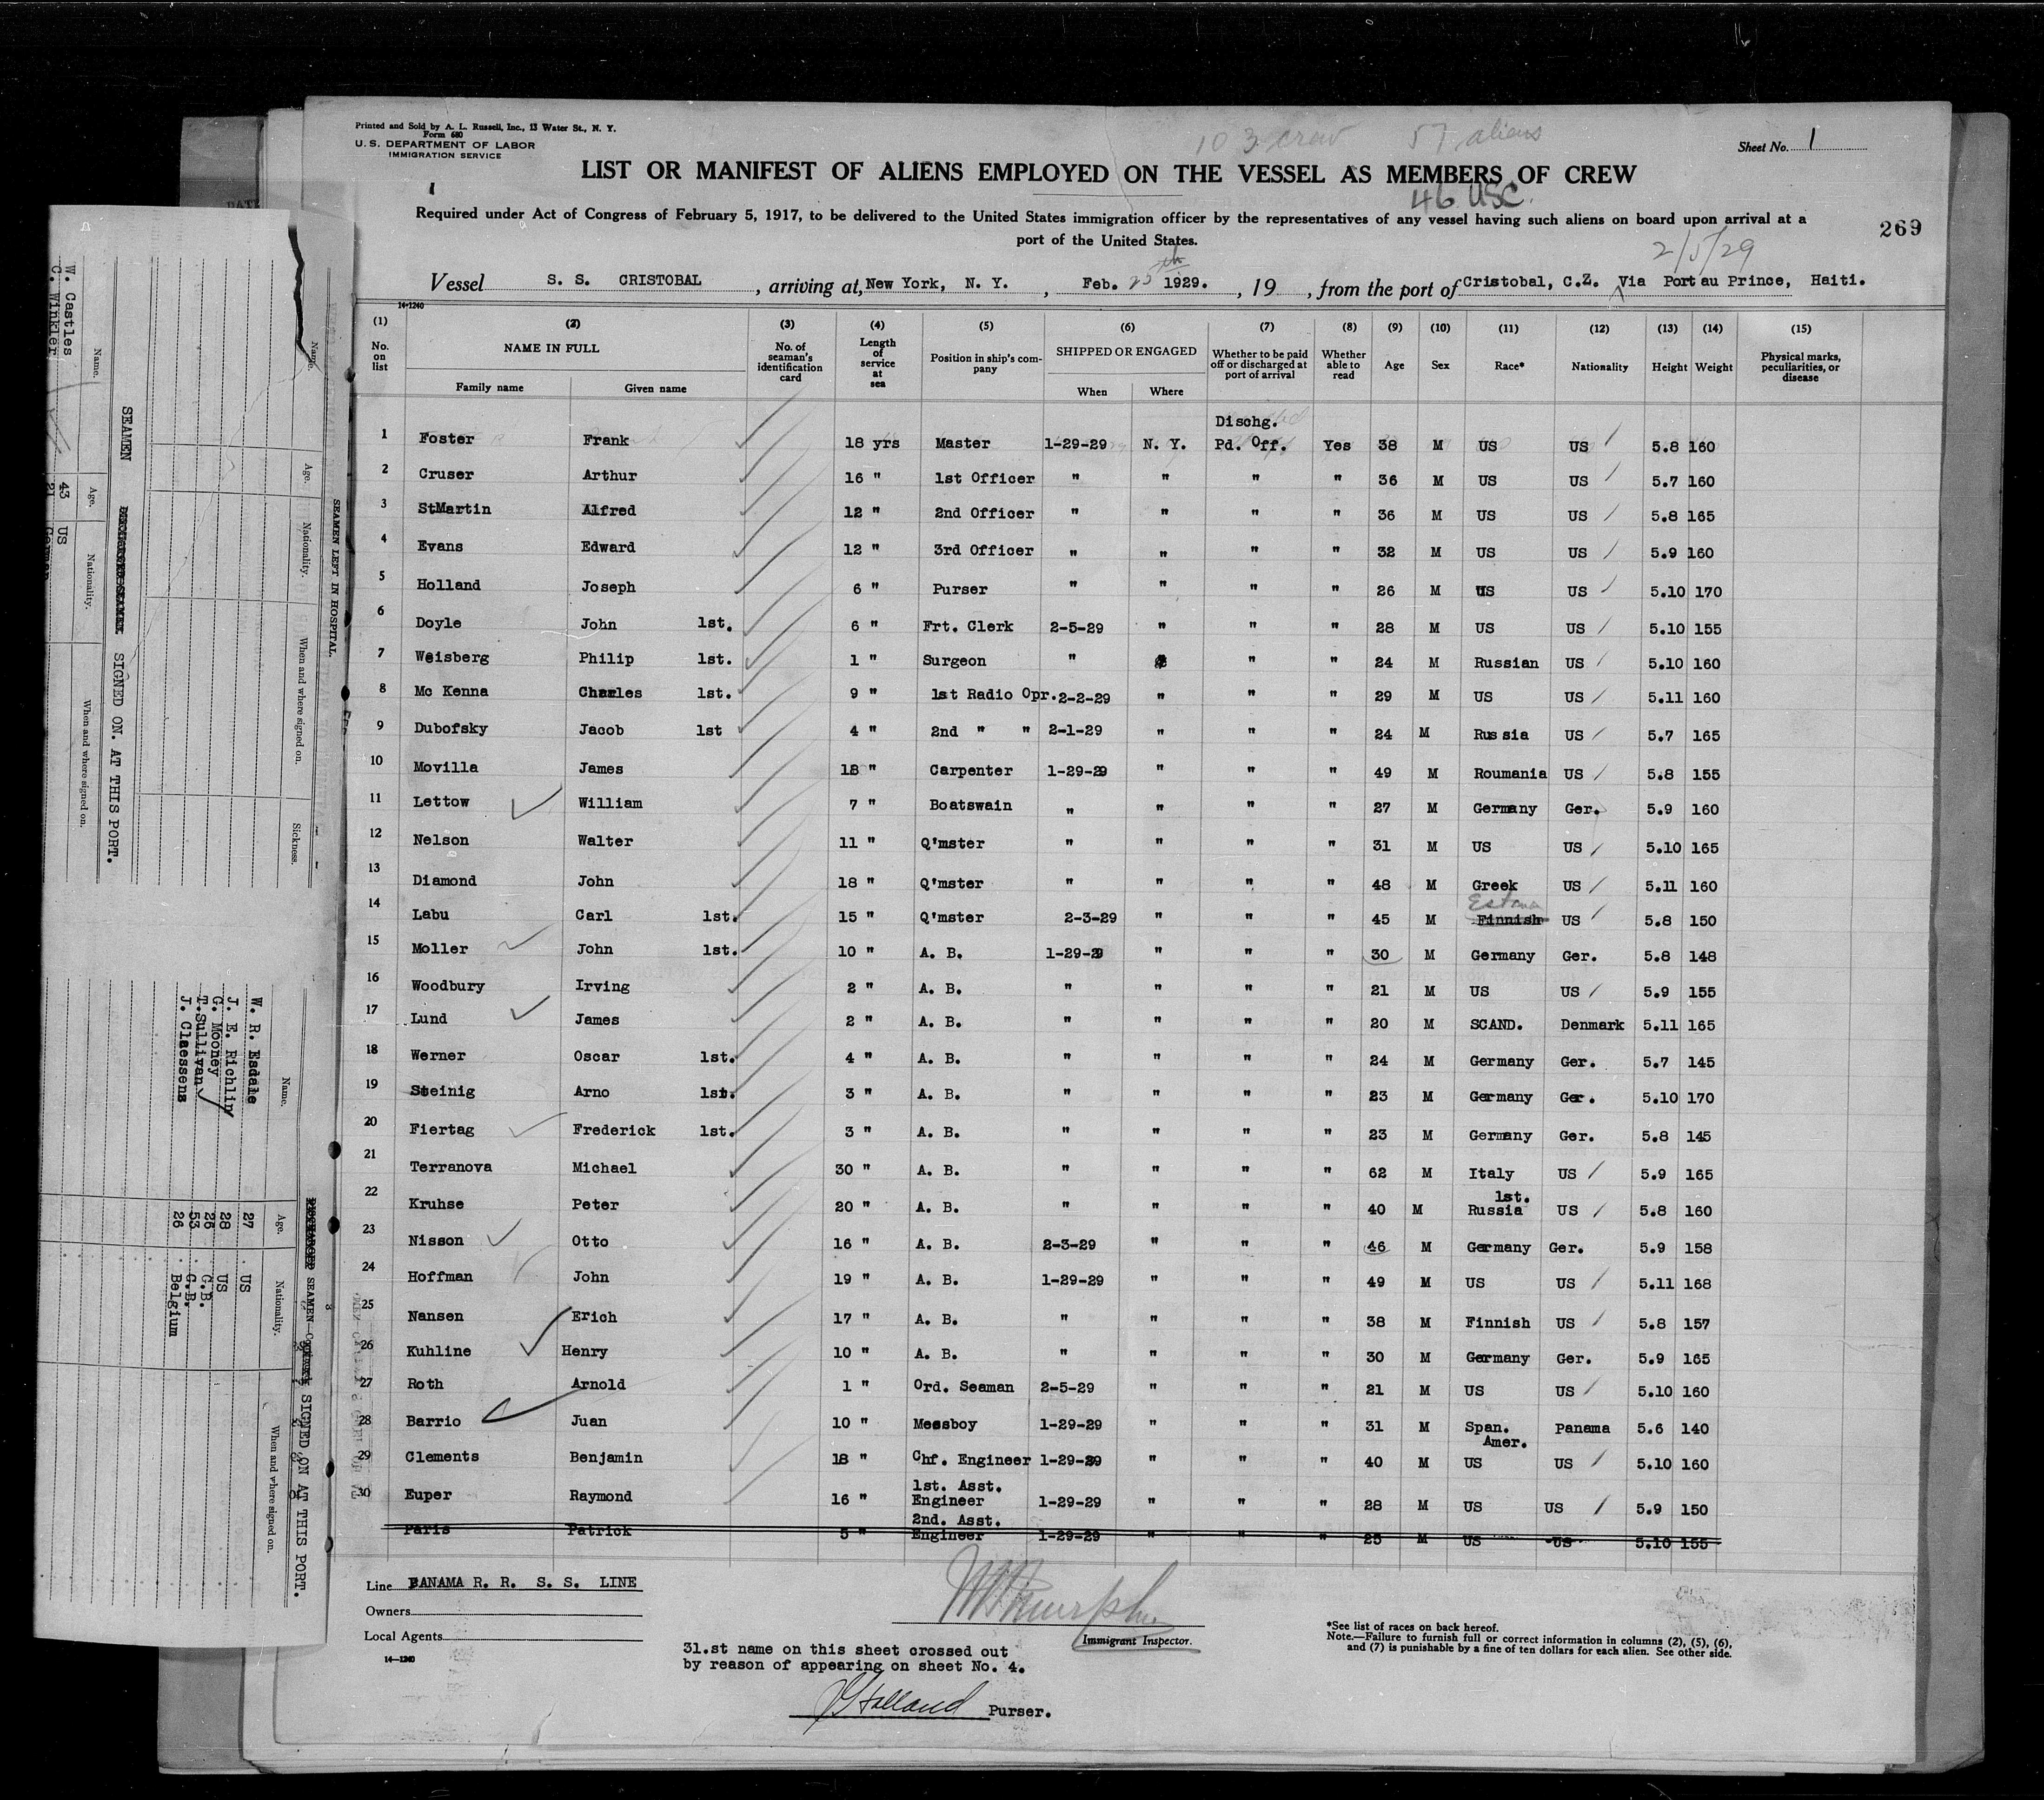 Printed and Sold by A. L. Russell, Inc., 13 Water St., N. Y.
Form 680
U. S. DEPARTMENT OF LABOR
IMMIGRATION SERVICE
103 crew 57 aliens
Sheet No. 1
LIST OR MANIFEST OF ALIENS EMPLOYED ON THE VESSEL AS MEMBERS OF CREW
1
46 USC.
Required under Act of Congress of February 5, 1917, to be delivered to the United States immigration officer by the representatives of any vessel having such aliens on board upon arrival at a
port of the United States.
269
2/5/29
Vessel S. S. CRISTOBAL, arriving at, New York, N. Y., Feb. 25th 1929., 19 , from the port of Cristobal, C.Z. Via Port au Prince, Haiti.
14-1240
(1) (2) (3) (4) (5) (6) (7) (8) (9) (10) (11) (12) (13) (14) (15)
No. on list NAME IN FULL No. of seaman's identification card Length of service at sea Position in ship's company SHIPPED OR ENGAGED Whether to be paid off or discharged at port of arrival Whether able to read Age Sex Race* Nationality Height Weight Physical marks, peculiarities, or disease
Family name Given name When Where
Dischg.
1 Foster Frank 18 yrs Master 1-29-29 N. Y. Pd. Off. Yes 38 M US US 5.8 160
2 Cruser Arthur 16 " 1st Officer " " " " 36 M US US 5.7 160
3 StMartin Alfred 12 " 2nd Officer " " " " 36 M US US 5.8 165
4 Evans Edward 12 " 3rd Officer " " " " 32 M US US 5.9 160
5 Holland Joseph 6 " Purser " " " " 26 M US US 5.10 170
6 Doyle John 1st. 6 " Frt. Clerk 2-5-29 " " " 28 M US US 5.10 155
7 Weisberg Philip 1st. 1 " Surgeon " " " 24 M Russian US 5.10 160
8 Mc Kenna Charles 1st. 9 " 1st Radio Opr. 2-2-29 " " " 29 M US US 5.11 160
9 Dubofsky Jacob 1st 4 " 2nd " " 2-1-29 " " " 24 M Russia US 5.7 165
10 Movilla James 18 " Carpenter 1-29-29 " " " 49 M Roumania US 5.8 155
11 Lettow William 7 " Boatswain " " " " 27 M Germany Ger. 5.9 160
12 Nelson Walter 11 " Q'mster " " " " 31 M US US 5.10 165
13 Diamond John 18 " Q'mster " " " " 48 M Greek US 5.11 160
14 Labu Carl 1st. 15 " Q'mster 2-3-29 " " " 45 M Finnish US 5.8 150
15 Moller John 1st. 10 " A. B. 1-29-29 " " " 30 M Germany Ger. 5.8 148
16 Woodbury Irving 2 " A. B. " " " " 21 M US US 5.9 155
17 Lund James 2 " A. B. " " " " 20 M SCAND. Denmark 5.11 165
18 Werner Oscar 1st. 4 " A. B. " " " " 24 M Germany Ger. 5.7 145
19 Steinig Arno 1st. 3 " A. B. " " " " 23 M Germany Ger. 5.10 170
20 Fiertag Frederick 1st. 3 " A. B. " " " " 23 M Germany Ger. 5.8 145
21 Terranova Michael 30 " A. B. " " " " 62 M Italy US 5.9 165
1st.
22 Kruhse Peter 20 " A. B. " " " " 40 M Russia US 5.8 160
23 Nisson Otto 16 " A. B. 2-3-29 " " " 46 M Germany Ger. 5.9 158
24 Hoffman John 19 " A. B. 1-29-29 " " " 49 M US US 5.11 168
25 Nansen Erich 17 " A. B. " " " " 38 M Finnish US 5.8 157
26 Kuhline Henry 10 " A. B. " " " " 30 M Germany Ger. 5.9 165
27 Roth Arnold 1 " Ord. Seaman 2-5-29 " " " 21 M US US 5.10 160
28 Barrio Juan 10 " Messboy 1-29-29 " " " 31 M Span. Amer. Panama 5.6 140
29 Clements Benjamin 18 " Chf. Engineer 1-29-29 " " " 40 M US US 5.10 160
30 Euper Raymond 16 " 1st. Asst. Engineer 1-29-29 " " " 28 M US US 5.9 150
Paris Patrick 5 " 2nd. Asst. Engineer 1-29-29 " " " 25 M US US 5.10 155
Line PANAMA R. R. S. S. LINE
Owners
Local Agents
14-1240
Immigrant Inspector.
31.st name on this sheet crossed out
by reason of appearing on sheet No. 4.
J Holland Purser.
*See list of races on back hereof.
Note.—Failure to furnish full or correct information in columns (2), (5), (6),
and (7) is punishable by a fine of ten dollars for each alien. See other side.
SEAMEN LEFT IN HOSPITAL.
Name. Age. Nationality. When and where signed on. Sickness.
SEAMEN SIGNED ON. AT THIS PORT.
Name. Age. Nationality. When and where signed on.
W. Castles 43 US
C. Winkler 21 German
SEAMEN SIGNED ON AT THIS PORT.
Name. Age. Nationality. When and where signed on.
W. R. Esdale 27 US
J. E. Richlin 28 US
G. Mooney 26 G.B.
T. Sullivan 53 G.B.
J. Claessens 26 Belgium